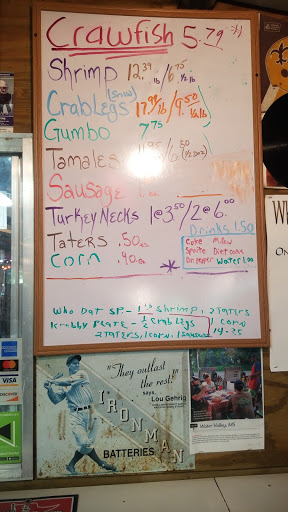 Crawfish 5.79
Shrimp 12.39 lb/6.75 1/2 lb
Crab Legs (Snow) 17.99 lb/9.50 1/2 lb
Gumbo 7.75
Tamales
Sausage
Turkey Necks 1@3.50/2@6.00
Drinks 1.50
Taters .50 ea
Corn .40 ea
Coke M.Yellow
Sprite Diet Coke
Dr. Pepper Water 1.00
Who Dat SP. - 1 lb shrimp, 2 taters
Krabby Plate - 1/2 Crab Legs 1 corn
2 taters, 1 corn, 1 sausage 14.25
"They outlast
the rest!"
says,
Lou Gehrig
IRONMAN
BATTERIES
Water Valley, MS
VISA
DISCOVER